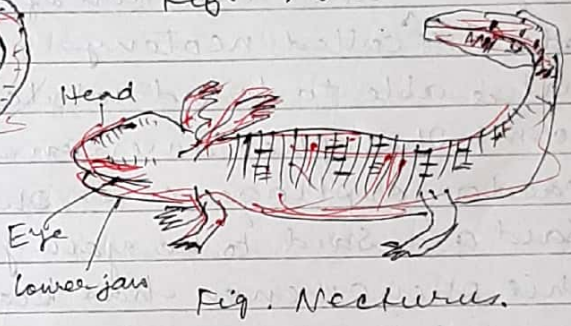 Head
Eye
Lower jaw
Fig. Necturus.